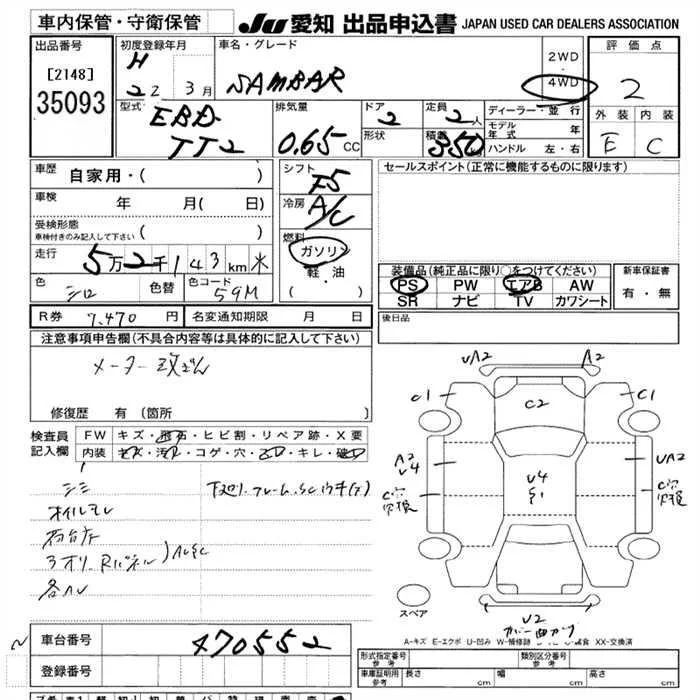 車内保管・守衛保管
JU 愛知 出品申込書 JAPAN USED CAR DEALERS ASSOCIATION
出品番号
[2148]
35093
初度登録年月
H
22 3月
車名・グレード
SAMBAR
2WD
・
4WD
評価点
2
外装 内装
E C
型式
EBD
TT2
排気量
0.65 CC
ドア
2
形状
定員
2人
積載
350
ディーラー・並行
モデル年式 年
ハンドル 左・右
車歴
自家用・( )
車検
年 月( 日)
受検形態
車検付きのみ記入して下さい ( )
走行 5万2千143km
色 シロ 色替 色コード 59M
シフト
F5
冷房
A/C
燃料
ガソリン
軽油
( ・ )
セールスポイント(正常に機能するものに限ります)
装備品(純正品に限り○をつけてください)
PS PW エアB AW
SR ナビ TV カワシート
新車保証書
有・無
R券 7,470 円 名変通知期限 月 日
後日品
注意事項申告欄(不具合内容等は具体的に記入して下さい)
メーター改ざん
修復歴 有 (箇所 )
検査員
記入欄
FW キズ・飛石・ヒビ割・リペア跡・X要
内装 キズ・汚れ・コゲ・穴・・キレ・破れ
シミ
オイルモレ
UA2 A2
C1 C2 C1
A2
U4
UA2
U4
S1
スペア
U2
A-キズ E-エクボ U-凹み W-補修跡 XX-交換済
車台番号 470552
登録番号
形式指定番号
参考
類別区分番号
参考
車庫証明用
参考
長さ cm 幅 cm 高さ cm